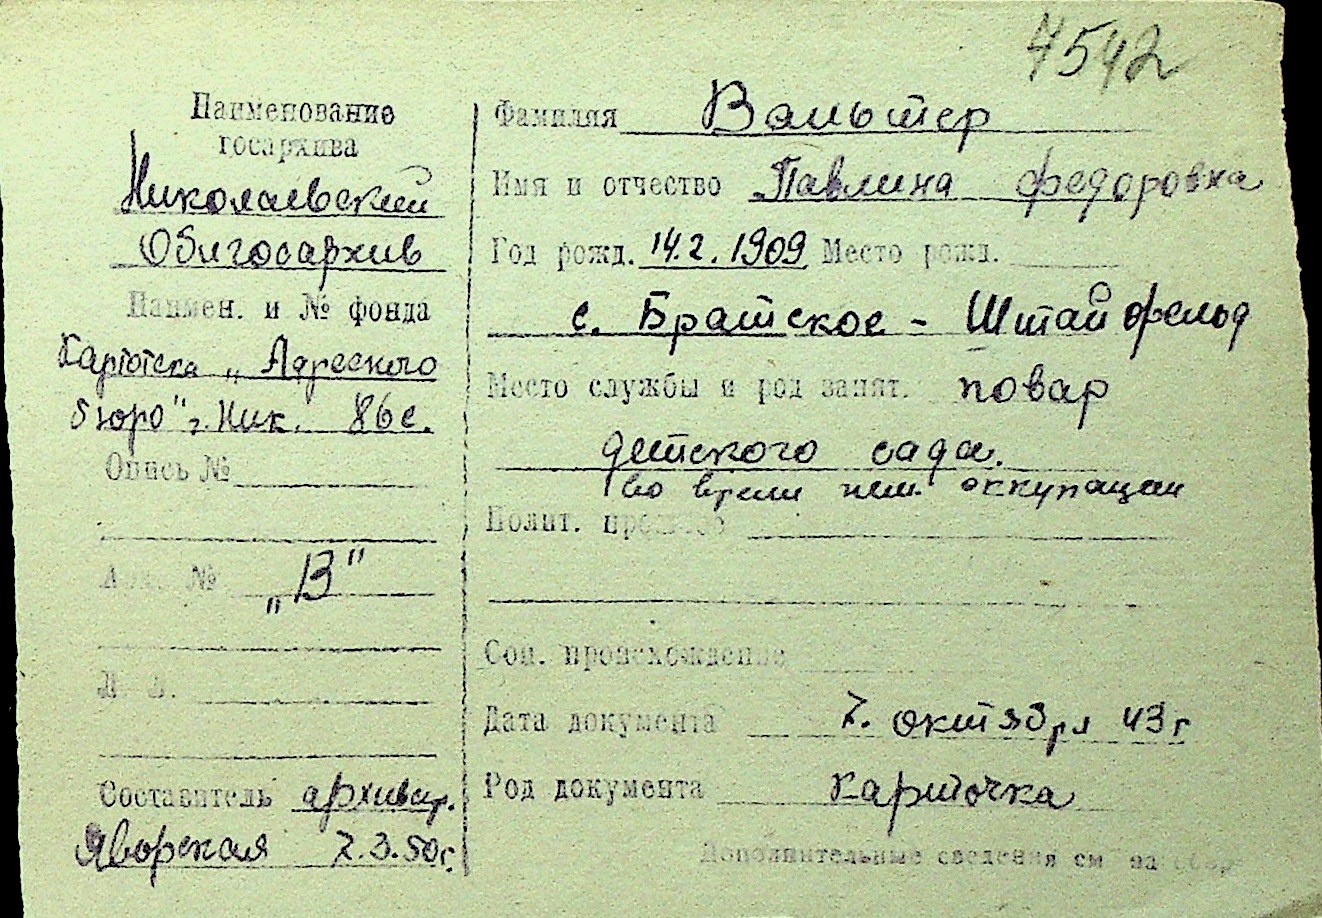 4542
Наименование
госархива
Николаевский
Облгосархив
Наимен. и № фонда
Картотека „Адресного
бюро" г. Ник. 86с.
Опись №
Арх. № „В"
Л Л.
Составитель архивар.
Яворская 7.3.50г.
Фамилия Вальтер
Имя и отчество Павлина Федоровна
Год рожд. 14.2.1909 Место рожд.
с. Братское - Штайфельд
Место службы и род занят. повар
детского сада.
во время нем. оккупации
Полит. прошлое
Соц. происхождение
Дата документа 7. октября 43 г
Род документа карточка
Дополнительные сведения см на обор